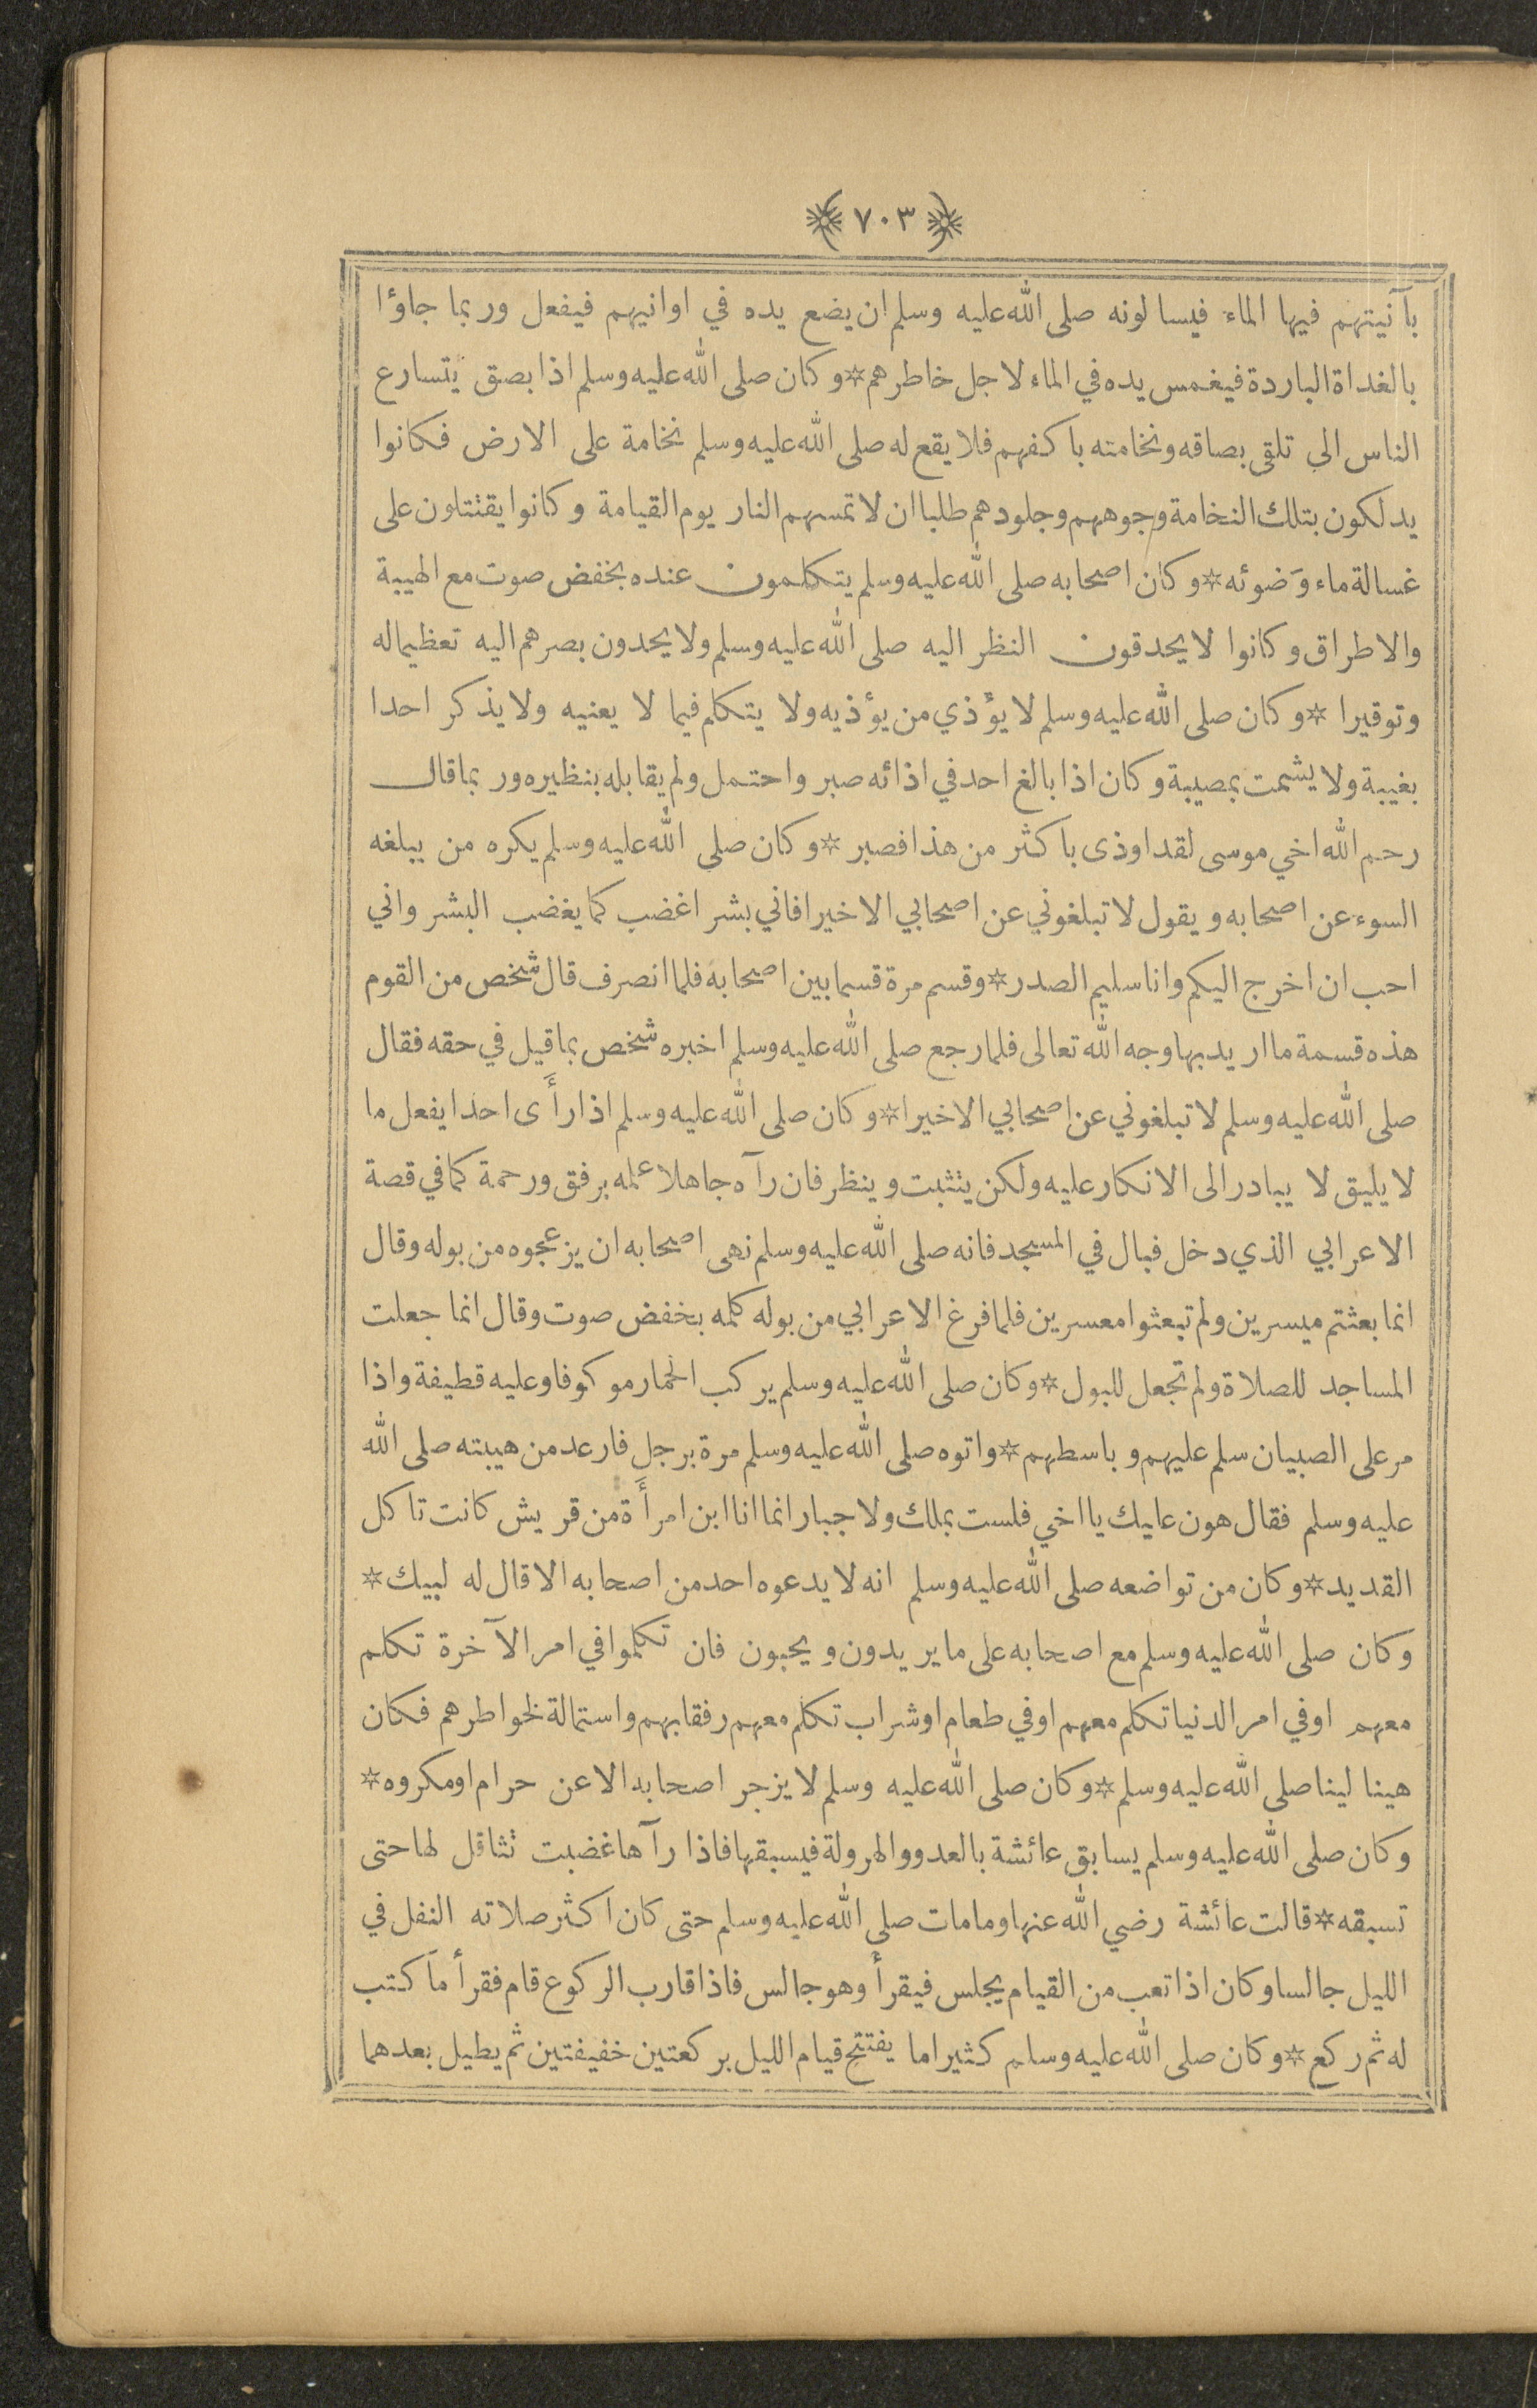 ﴿٧٠٣﴾
بآنيتهم فيها الماء فيسالونه صلى الله عليه وسلم ان يضع يده في اوانيهم فيفعل وربما جاؤا
بالغداة الباردة فيغمس يده في الماء لاجل خاطرهم * وكان صلى الله عليه وسلم اذا بصق يتسارع
الناس الى تلقى بصاقه ونخامته باكفهم فلا يقع له صلى الله عليه وسلم نخامة على الارض فكانوا
يدلكون بتلك النخامة وجوههم وجلودهم طلبا ان لا تمسهم النار يوم القيامة وكانوا يقتتلون على
غسالة ماء وَضوئه * وكان اصحابه صلى الله عليه وسلم يتكلمون عنده بخفض صوت مع الهيبة
والاطراق وكانوا لا يحدقون النظر اليه صلى الله عليه وسلم ولا يحدون بصرهم اليه تعظيما له
وتوقيرا * وكان صلى الله عليه وسلم لا يؤذي من يؤذيه ولا يتكلم فيما لا يعنيه ولا يذكر احدا
بغيبة ولا يشمت بمصيبة وكان اذا بالغ احد في اذائه صبر واحتمل ولم يقابله بنظيره وربما قال
رحم الله اخي موسى لقد اوذى باكثر من هذا فصبر * وكان صلى الله عليه وسلم يكره من يبلغه
السوء عن اصحابه ويقول لا تبلغوني عن اصحابي الا خيرا فاني بشر اغضب كما يغضب البشر واني
احب ان اخرج اليكم وانا سليم الصدر * وقسم مرة قسما بين اصحابه فلما انصرف قال شخص من القوم
هذه قسمة ما اريد بها وجه الله تعالى فلما رجع صلى الله عليه وسلم اخبره شخص بما قيل في حقه فقال
صلى الله عليه وسلم لا تبلغوني عن اصحابي الا خيرا * وكان صلى الله عليه وسلم اذا رأَى احدا يفعل ما
لا يليق لا يبادر الى الانكار عليه ولكن يتثبت وينظر فان رآه جاهلا علمه برفق ورحمة كما في قصة
الاعرابي الذي دخل فبال في المسجد فانه صلى الله عليه وسلم نهى اصحابه ان يزعجوه من بوله وقال
انما بعثتم ميسرين ولم تبعثوا معسرين فلما فرغ الاعرابي من بوله كلمه بخفض صوت وقال انما جعلت
المساجد للصلاة ولم تجعل للبول * وكان صلى الله عليه وسلم يركب الحمار موكوفا وعليه قطيفة واذا
مر على الصبيان سلم عليهم وباسطهم * واتوه صلى الله عليه وسلم مرة برجل فارعد من هيبته صلى الله
عليه وسلم فقال هون عليك يا اخي فلست بملك ولا جبار انما انا ابن امرأَة من قريش كانت تاكل
القديد * وكان من تواضعه صلى الله عليه وسلم انه لا يدعوه احد من اصحابه الا قال له لبيك *
وكان صلى الله عليه وسلم مع اصحابه على ما يريدون ويحبون فان تكلموا في امر الآخرة تكلم
معهم او في امر الدنيا تكلم معهم او في طعام او شراب تكلم معهم رفقا بهم واستمالة لخواطرهم فكان
هينا لينا صلى الله عليه وسلم * وكان صلى الله عليه وسلم لا يزجر اصحابه الا عن حرام او مكروه *
وكان صلى الله عليه وسلم يسابق عائشة بالعدو والهرولة فيسبقها فاذا رآها غضبت تثاقل لها حتى
تسبقه * قالت عائشة رضي الله عنها وما مات صلى الله عليه وسلم حتى كان اكثر صلاته النفل في
الليل جالسا وكان اذا تعب من القيام يجلس فيقرأ وهو جالس فاذا قارب الركوع قام فقرأ ما كتب
له ثم ركع * وكان صلى الله عليه وسلم كثيرا ما يفتتح قيام الليل بركعتين خفيفتين ثم يطيل بعدهما